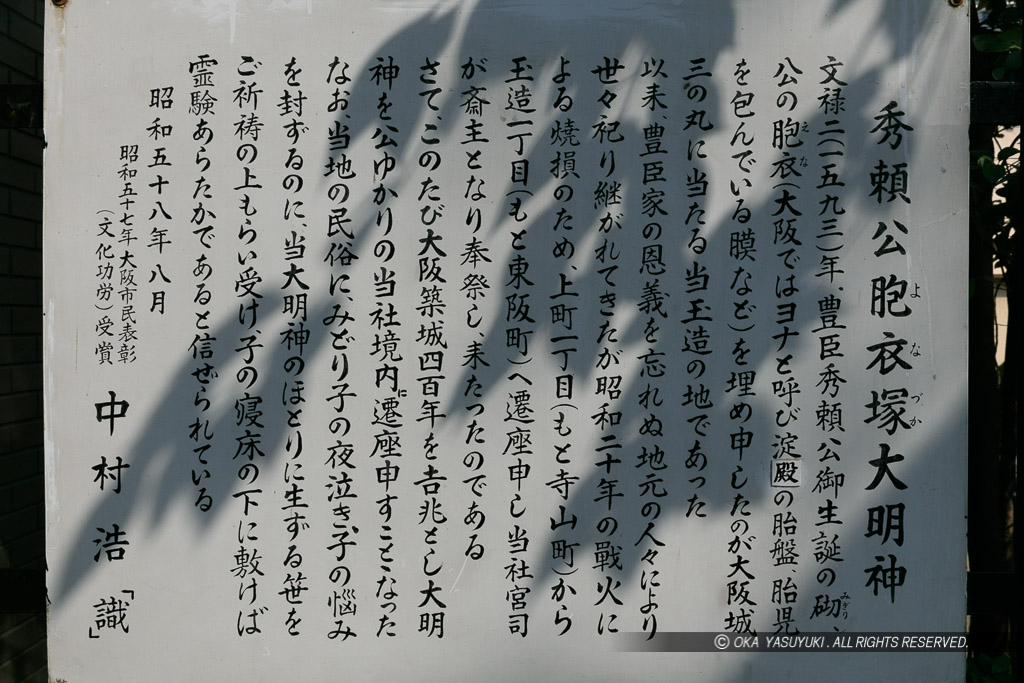 秀頼公胞衣塚大明神
よなづか
文禄二(一五九三)年、豊臣秀頼公御生誕の砌、
みぎり
公の胞衣(大阪ではヨナと呼び淀殿の胎盤 胎児
えな
を包んでいる膜など)を埋め申したのが大阪城
三の丸に当たる当玉造の地であった
以来、豊臣家の恩義を忘れぬ地元の人々により
世々祀り継がれてきたが昭和二十年の戰火に
よる焼損のため、上町一丁目(もと寺山町)から
玉造一丁目(もと東阪町)へ遷座申し当社宮司
が斎主となり奉祭し、来たったのである
さて、このたび大阪築城四百年を吉兆とし大明
神を公ゆかりの当社境内に遷座申すこととなった
なお、当地の民俗に、みどり子の夜泣き、子の悩み
を封ずるのに、当大明神のほとりに生ずる笹を
ご祈祷の上もらい受け、子の寝床の下に敷けば
霊験あらたかであると信ぜられている
昭和五十八年八月
昭和五十七年大阪市民表彰
(文化功労)受賞
中村浩「識」
© OKA YASUYUKI. ALL RIGHTS RESERVED.